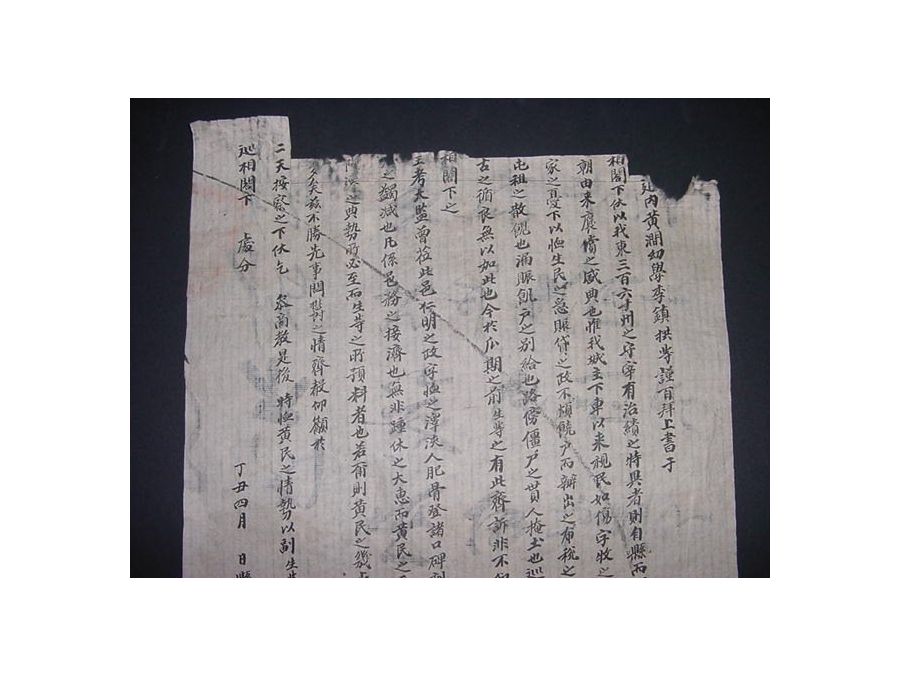 道內黃澗幼學李鎭拱等謹百拜上書于
相閤下伏以我東三百六十州之守宰有治績之特異者則自縣而
朝由來褒賞之盛典也惟我城主下車以來視民如傷字牧之
家之憂下以恤生民之急賑貸之政不煩饒戶而辦出之布稅之
屯租之散俵也滿賑飢戶之別給也路傍僵尸之貰人掩土也巡
古之循良無以加此也今於瓜期之前生等之有此齊訴非不
相閤下之
王考大監曾莅此邑仁明之政字恤之澤浹人肥骨登諸口碑
之蠲減也凡係邑務之接濟也無非踵休之大惠而黃民之
之典勢所必至而生等之所預料者也若爾則黃民之幾
矣玆不勝先事悶鬱之情齊敎仰籲於
二天按察之下伏乞 參商敎是後 特恤黃民之情勢以副生
巡相閤下 處分
丁丑四月 日縣